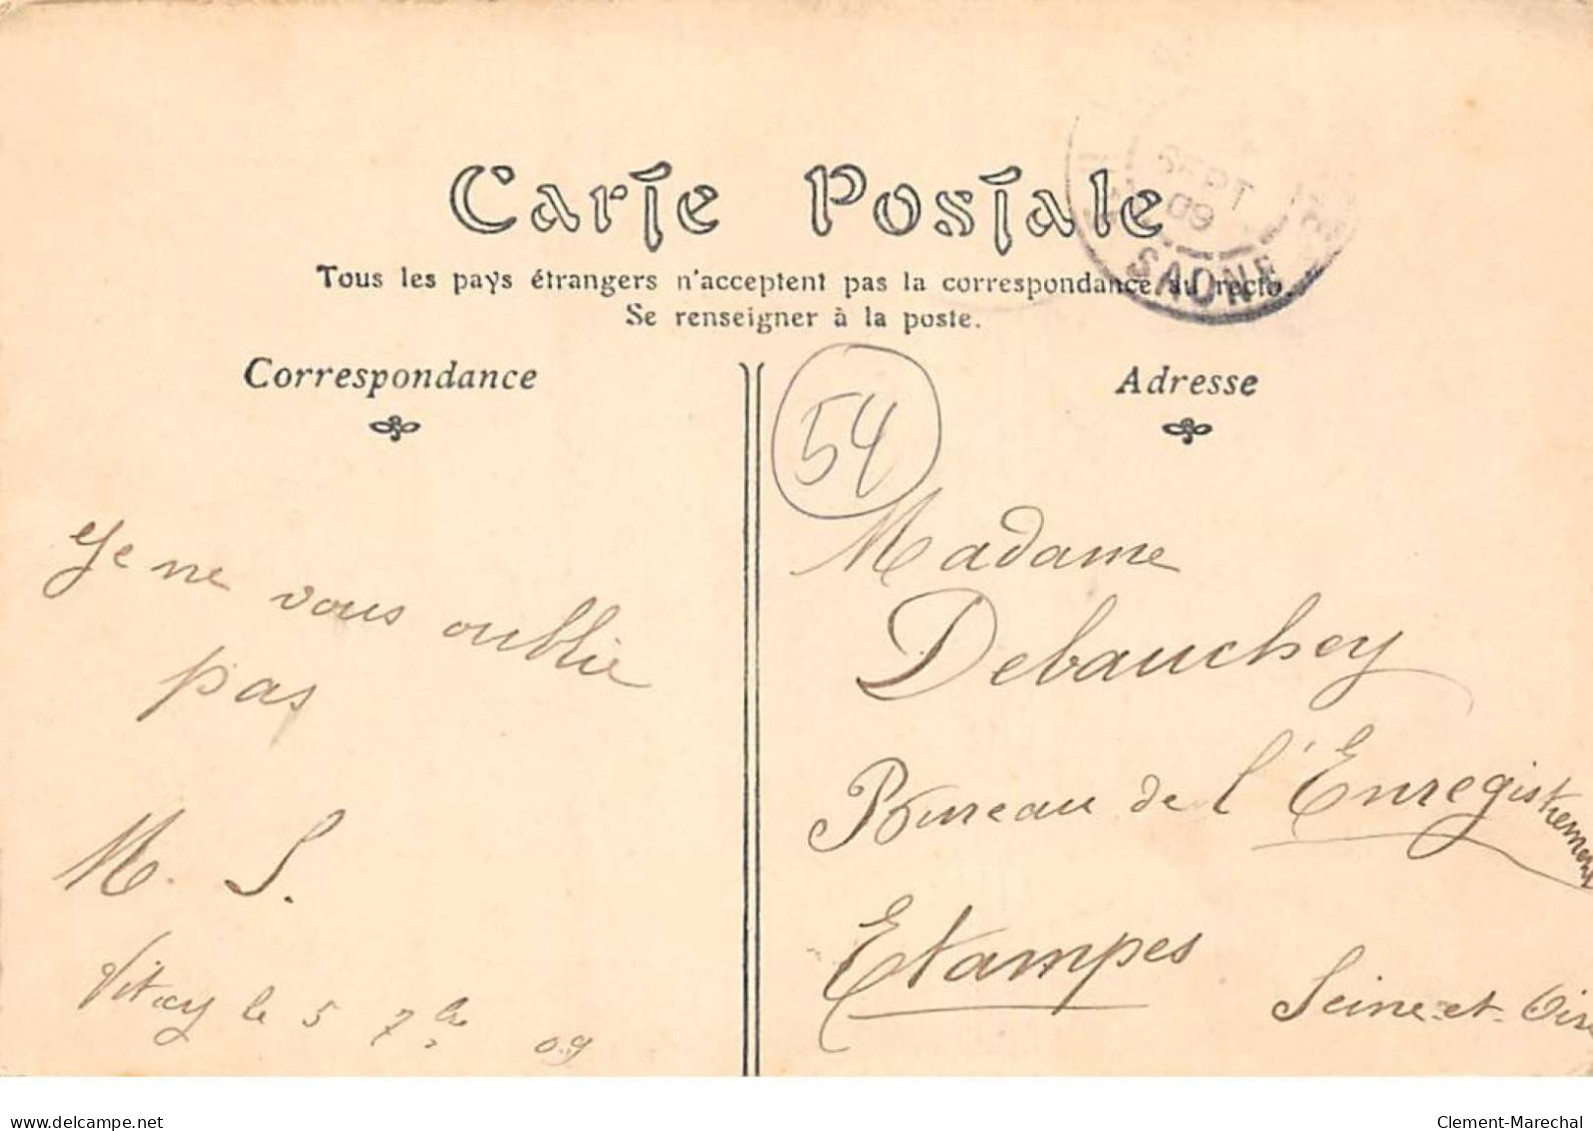 Carte Postale
Tous les pays étrangers n'acceptent pas la correspondance au recto.
Se renseigner à la poste.
SEPT
09
SAONE
Correspondance
Adresse
54
Je ne vous oublie
pas
M. S.
Vitrey le 5 7bre 09
Madame
Debauchey
Bureau de l'Enregistrement
Etampes
Seine-et-Oise
delcampe.net
Clement-Marechal